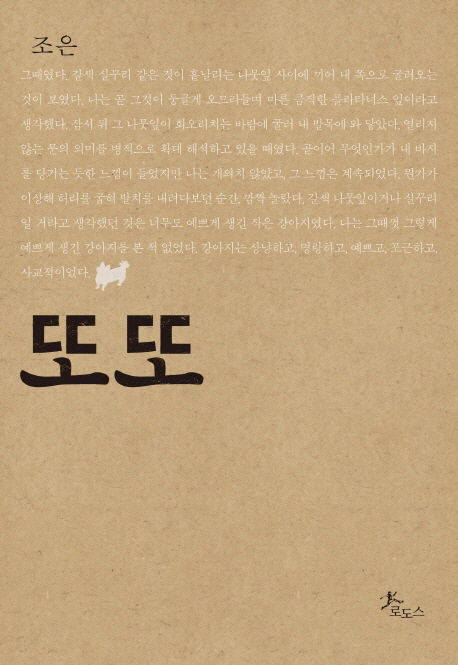 조은
그때였다. 갈색 실꾸리 같은 것이 흩날리는 나뭇잎 사이에 끼어 내 쪽으로 굴러오는
것이 보였다. 나는 곧 그것이 둥글게 오므라들며 마른 큼직한 플라타너스 잎이라고
생각했다. 잠시 뒤 그 나뭇잎이 회오리치는 바람에 굴러 내 발목에 와 닿았다. 열리지
않는 문의 의미를 병적으로 확대 해석하고 있을 때였다. 곧이어 무엇인가가 내 바지
를 당기는 듯한 느낌이 들었지만 나는 개의치 않았고, 그 느낌은 계속되었다. 뭔가가
이상해 허리를 굽혀 발치를 내려다보던 순간, 깜짝 놀랐다. 갈색 나뭇잎이거나 실꾸리
일 거라고 생각했던 것은 너무도 예쁘게 생긴 작은 강아지였다. 나는 그때껏 그렇게
예쁘게 생긴 강아지를 본 적 없었다. 강아지는 상냥하고, 명랑하고, 예쁘고, 포근하고,
사교적이었다.
또또
로도스